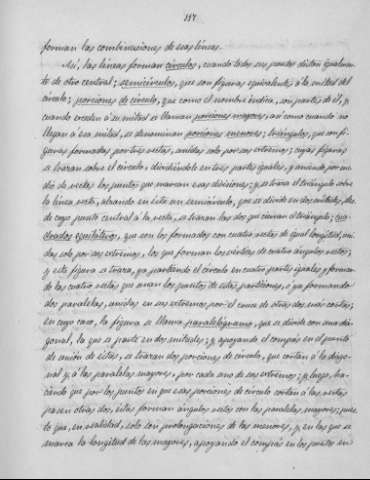 117
forman las combinaciones de esas líneas.
Así, las líneas forman círculos, cuando todos sus puntos distan igualmen-
te de otro central; semicírculos, que son figuras equivalentes á la mitad del
círculo; porciones de círculo, que como el nombre indica, son partes de él, y
cuando exceden á su mitad se llaman porciones mayores, así como cuando no
llegan á esa mitad, se denominan porciones menores; triángulos, que son fi-
guras formadas por tres rectas, unidas solo por sus extremos; cuyas figuras
se trazan sobre el círculo, dividiéndole en tres partes iguales, y uniendo por me-
dio de rectas los puntos que marcan esas divisiones; y se traza el triángulo sobre
la línea recta, alzando en ésta un semicírculo, que se divide en dos mitades, des-
de cuyo punto central á la recta, se tiran las dos que cierran el triángulo; cua-
drados, que son los formados con cuatro rectas de igual longitud, uni-
das solo por sus extremos, los que forman los vértices de cuatro ángulos rectos;
y esta figura se traza, ya partiendo el círculo en cuatro partes iguales, y forman-
do las cuatro rectas que unan los puntos de estas particiones, o ya formando
dos paralelas, unidas en sus extremos por el cruce de otras dos mas cortas;
en cuyo caso, la figura se llama paralelógramo, que se divide con una dia-
gonal, la que se parte en dos mitades; y apoyando el compás en el punto
de unión de éstas, se trazan dos porciones de círculo, que cortan á la diago-
nal y á las paralelas mayores, por cada uno de sus extremos; y luego, ha-
ciendo que por los puntos en que esas porciones de círculo cortan á las rectas
pasen otras dos, éstas forman ángulos rectos con las paralelas mayores; pues-
to que, en realidad, solo son prolongaciones de las menores, y en las que se
marca la longitud de las mayores, apoyando el compás en los puntos en